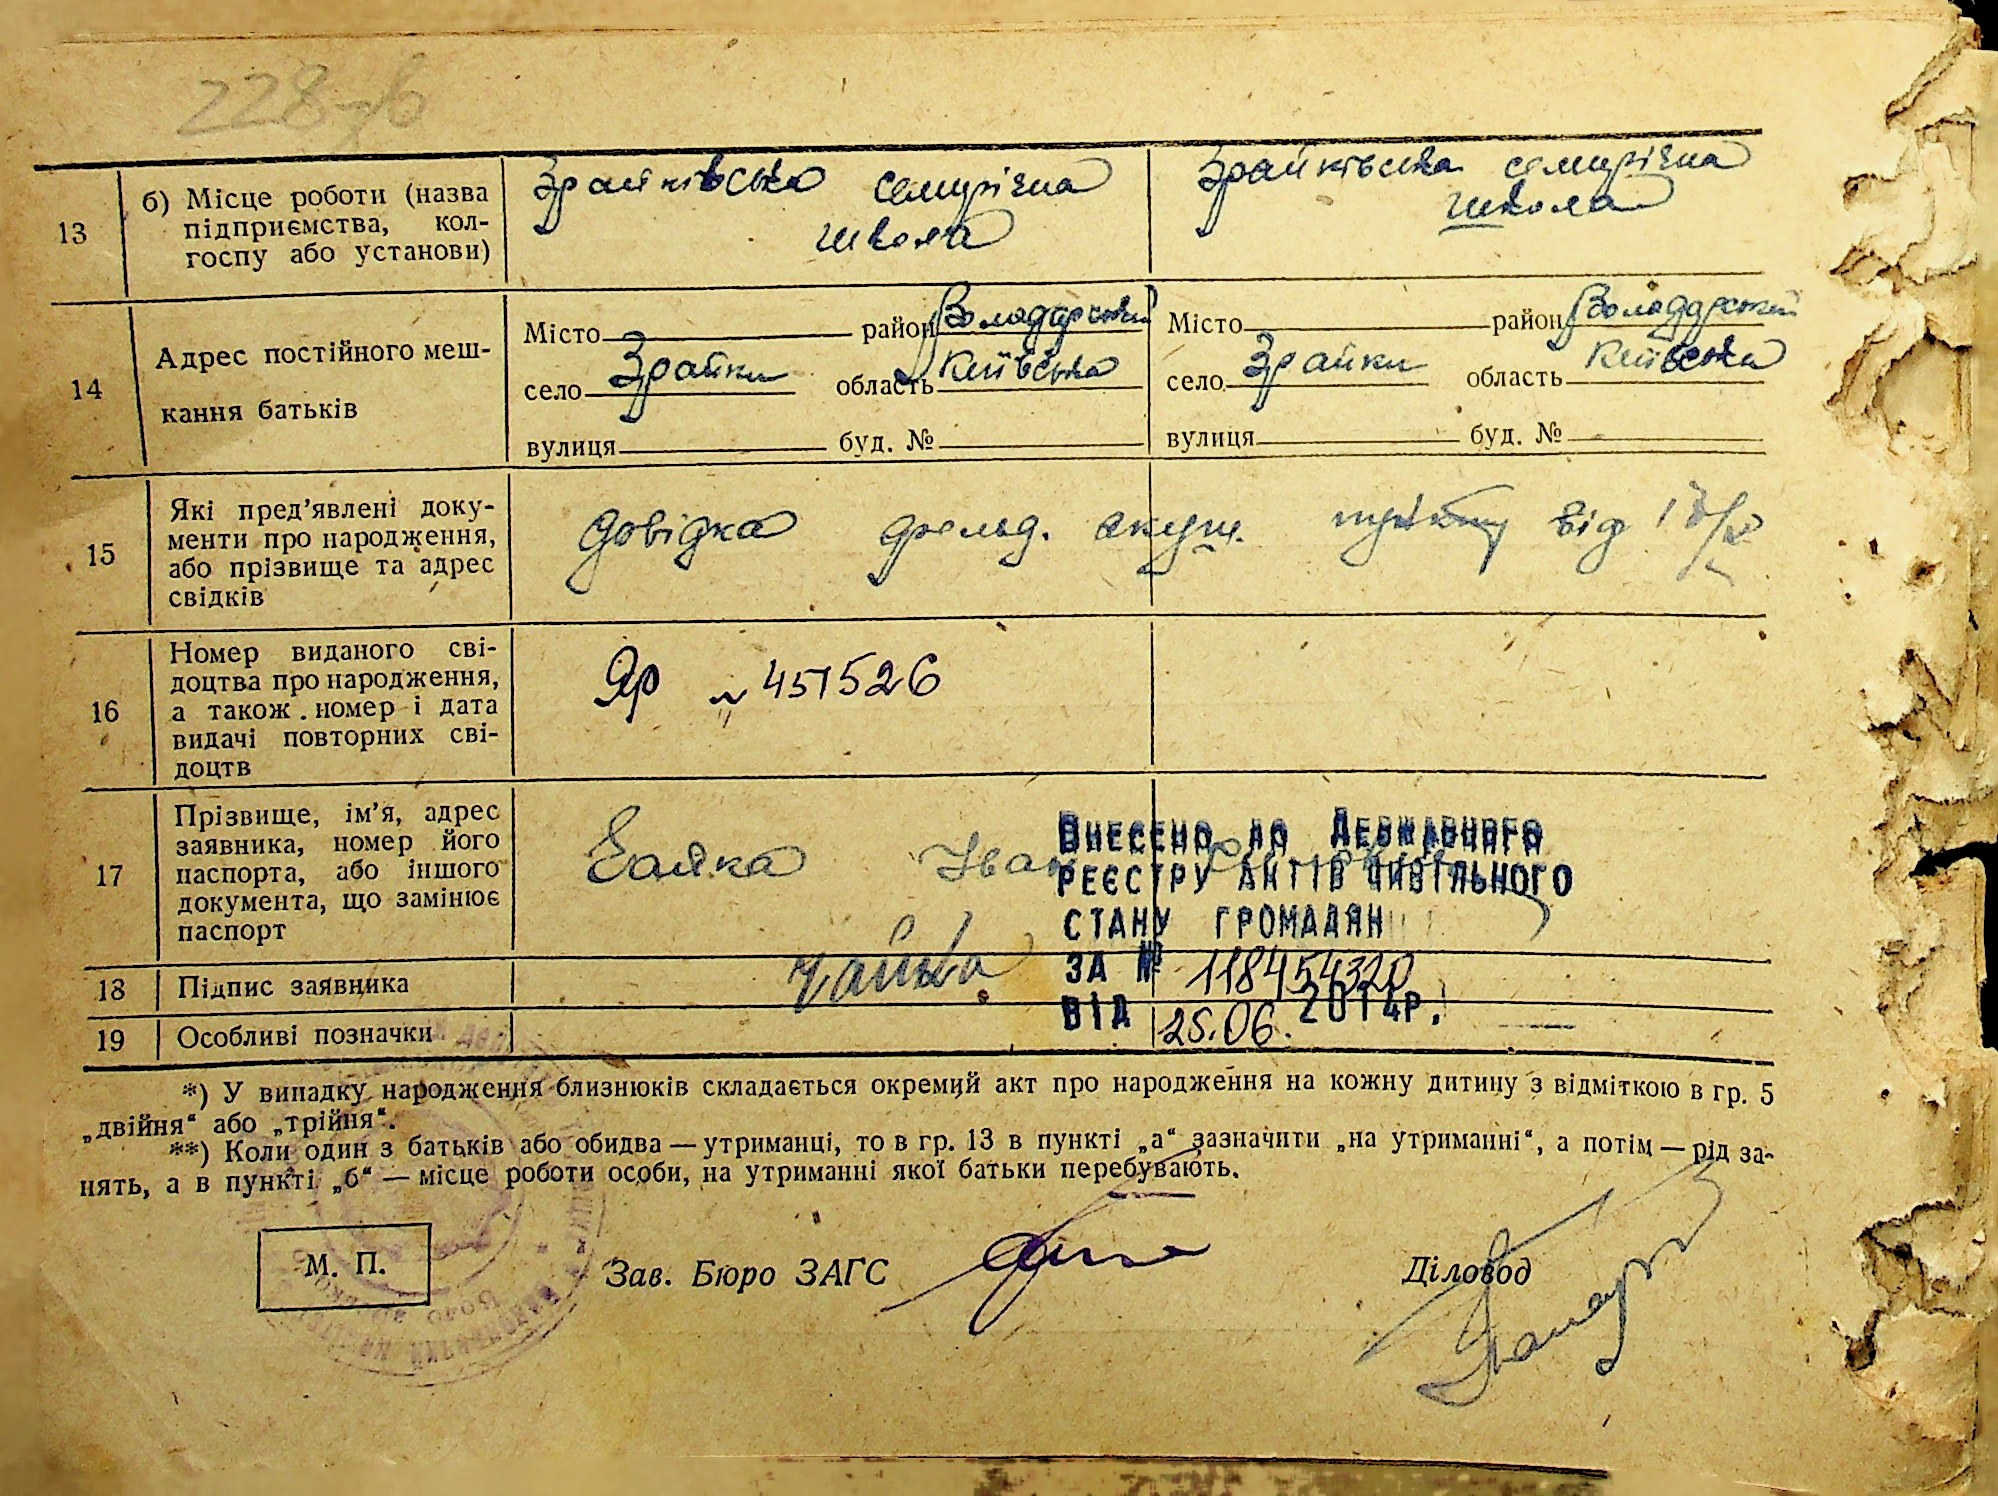 228зв
13
б) Місце роботи (назва
підприємства, кол-
госпу або установи)
Зрайківська семирічна
школа
Зрайківська семирічна
школа
14
Адрес постійного меш-
кання батьків
Місто район Володарський
село Зрайки область Київська
вулиця буд. №
Місто район Володарський
село Зрайки область Київська
вулиця буд. №
15
Які пред'явлені доку-
менти про народження,
або прізвище та адрес
свідків
довідка фельд. акуш. пункту від
16
Номер виданого сві-
доцтва про народження,
а також номер і дата
видачі повторних сві-
доцтв
Яр № 451526
17
Прізвище, ім'я, адрес
заявника, номер його
паспорта, або іншого
документа, що замінює
паспорт
Іван
ВНЕСЕНО ДО ДЕРЖАВНОГО
РЕЄСТРУ АКТІВ ЦИВІЛЬНОГО
СТАНУ ГРОМАДЯН
ЗА № 118454320
ВІД 25.06. 2014Р.
18
Підпис заявника
19
Особливі позначки
*) У випадку народження близнюків складається окремий акт про народження на кожну дитину з відміткою в гр. 5
„двійня“ або „трійня“.
**) Коли один з батьків або обидва — утриманці, то в гр. 13 в пункті „а“ зазначити „на утриманні“, а потім — рід за-
нять, а в пункті „б“ — місце роботи особи, на утриманні якої батьки перебувають.
М. П.
Зав. Бюро ЗАГС
Діловод